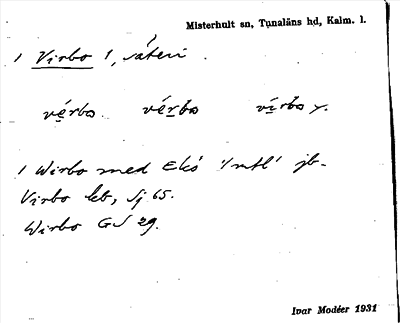 Misterhult sn, Tunaläns hd, Kalm. l.
1 Virbo 1, säteri.
vérba. vérba vírba y.
1 Wirbo med Ekö 1/1 mtl jb-
Virbo kb, Sj 65.
Wirbo GS 29.
Ivar Modéer 1931